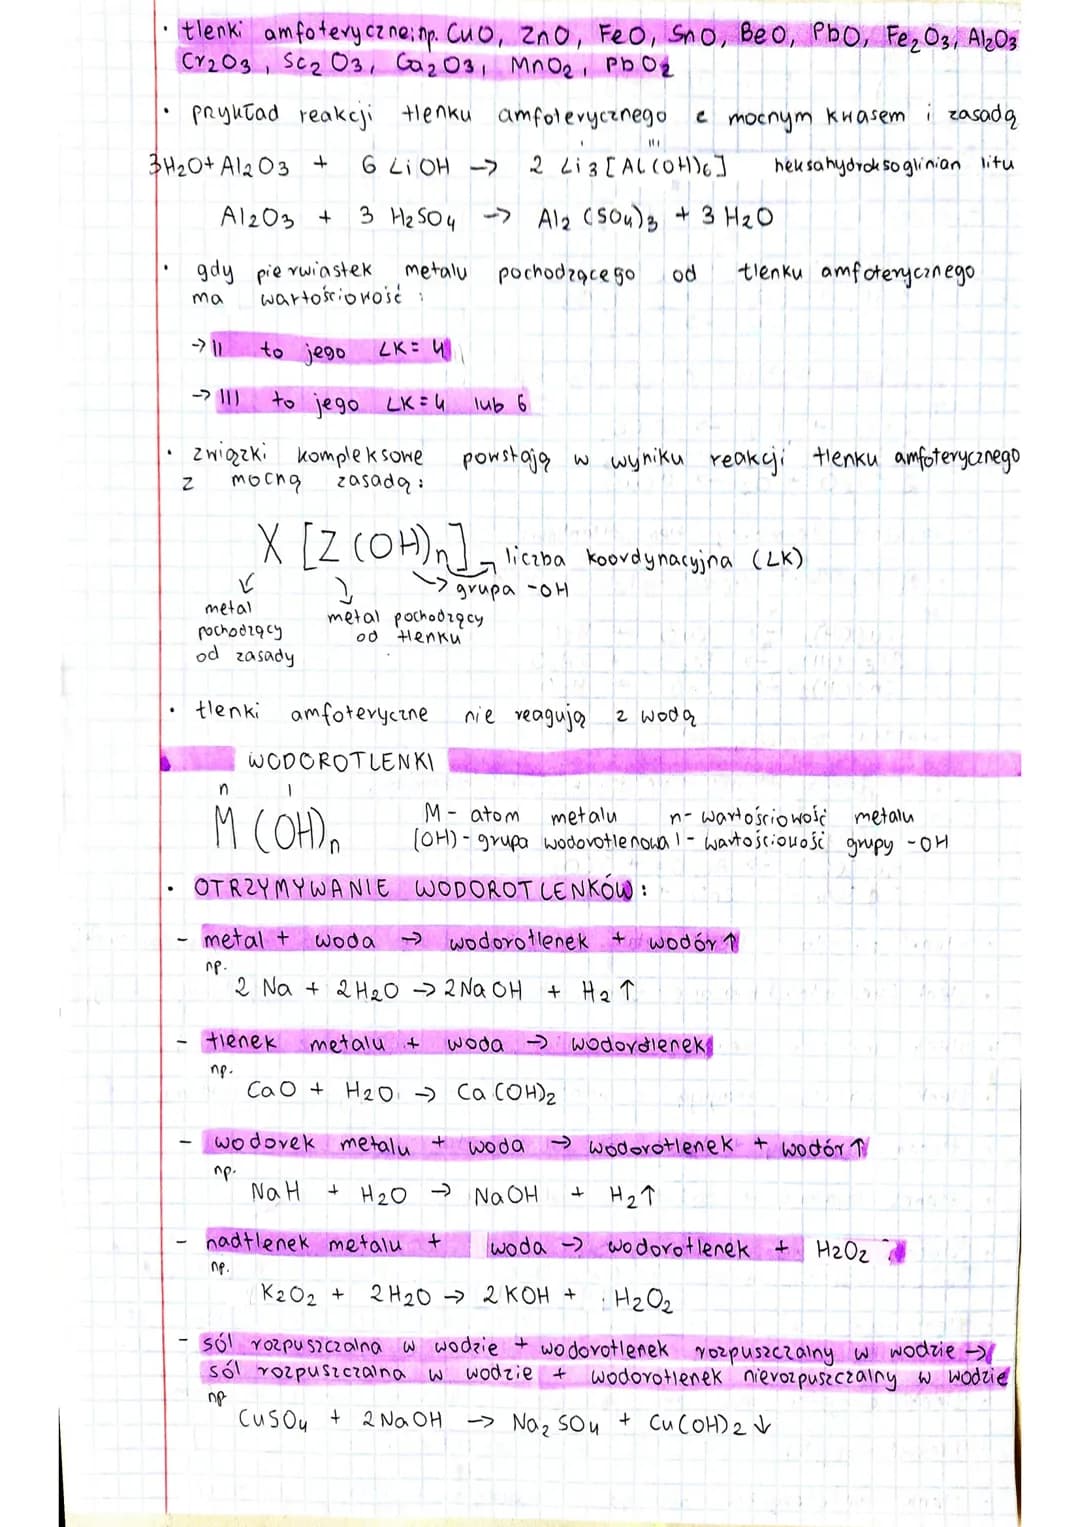 • tlenki amfoteryczne; np. CuO, ZnO, FeO, SnO, BeO, PbO, Fe2O3, Al2O3
Cr2O3, Sc2O3, Ga2O3, MnO2, PbO2
• przykład reakcji tlenku amfoterycznego z mocnym kwasem i zasadą
3H2O + Al2O3 + 6 LiOH -> 2 Li3[Al(OH)6] heksahydroksoglinian litu
Al2O3 + 3 H2SO4 -> Al2(SO4)3 + 3 H2O
• gdy pierwiastek metalu pochodzącego od tlenku amfoterycznego
ma wartościowość:
-> II to jego LK = 4
-> III to jego LK = 4 lub 6
• związki kompleksowe powstają w wyniku reakcji tlenku amfoterycznego
z mocną zasadą:
X [Z(OH)n] -> liczba koordynacyjna (LK)
-> grupa -OH
metal
pochodzący
od zasady
metal pochodzący
od tlenku
• tlenki amfoteryczne nie reagują z wodą
WODOROTLENKI
n I
M(OH)n
M - atom metalu n - wartościowość metalu
(OH) - grupa wodorotlenowa I - wartościowość grupy -OH
• OTRZYMYWANIE WODOROTLENKÓW:
- metal + woda -> wodorotlenek + wodór ↑
np.
2 Na + 2 H2O -> 2 NaOH + H2 ↑
- tlenek metalu + woda -> wodorotlenek
np.
CaO + H2O -> Ca(OH)2
- wodorek metalu + woda -> wodorotlenek + wodór ↑
np.
NaH + H2O -> NaOH + H2 ↑
- nadtlenek metalu + woda -> wodorotlenek + H2O2
np.
K2O2 + 2 H2O -> 2 KOH + H2O2
- sól rozpuszczalna w wodzie + wodorotlenek rozpuszczalny w wodzie ->
sól rozpuszczalna w wodzie + wodorotlenek nierozpuszczalny w wodzie
np
CuSO4 + 2 NaOH -> Na2SO4 + Cu(OH)2 ↓